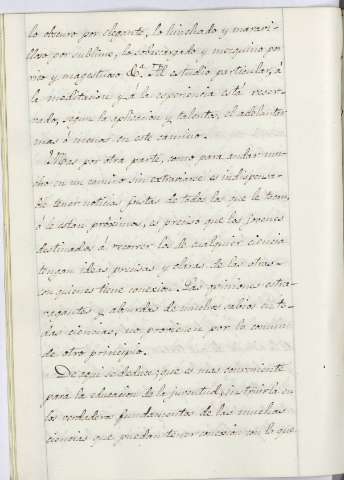 lo obscuro por elegante, lo hinchado y maravi-
lloso por sublime, lo sobrecargado y mezquino por
rico y magestuoso &ª. Al estudio particular, á
la meditacion y á la esperiencia está reser-
vado, segun la aplicacion y talento, el adelantar
mas ó menos en este camino.
Mas por otra parte, como para andar mu-
cho en un camino sin extraviarse es indispensa-
ble tener noticias justas de todos los que le tocan,
ó le estan próximos, es preciso que los jovenes
destinados á recorrer los de cualquier ciencia
tengan ideas precisas y claras de las otras
con quienes tiene conexion. Las opiniones estra-
vagantes y absurdas de muchos sabios en to-
das ciencias, no proviene por lo comun
de otro principio.
De aqui se deduce, que es mas conveniente
para la educacion de la juventud, instruirla en
los verdaderos fundamentos de las muchas
ciencias que puedan tener conexion con la que